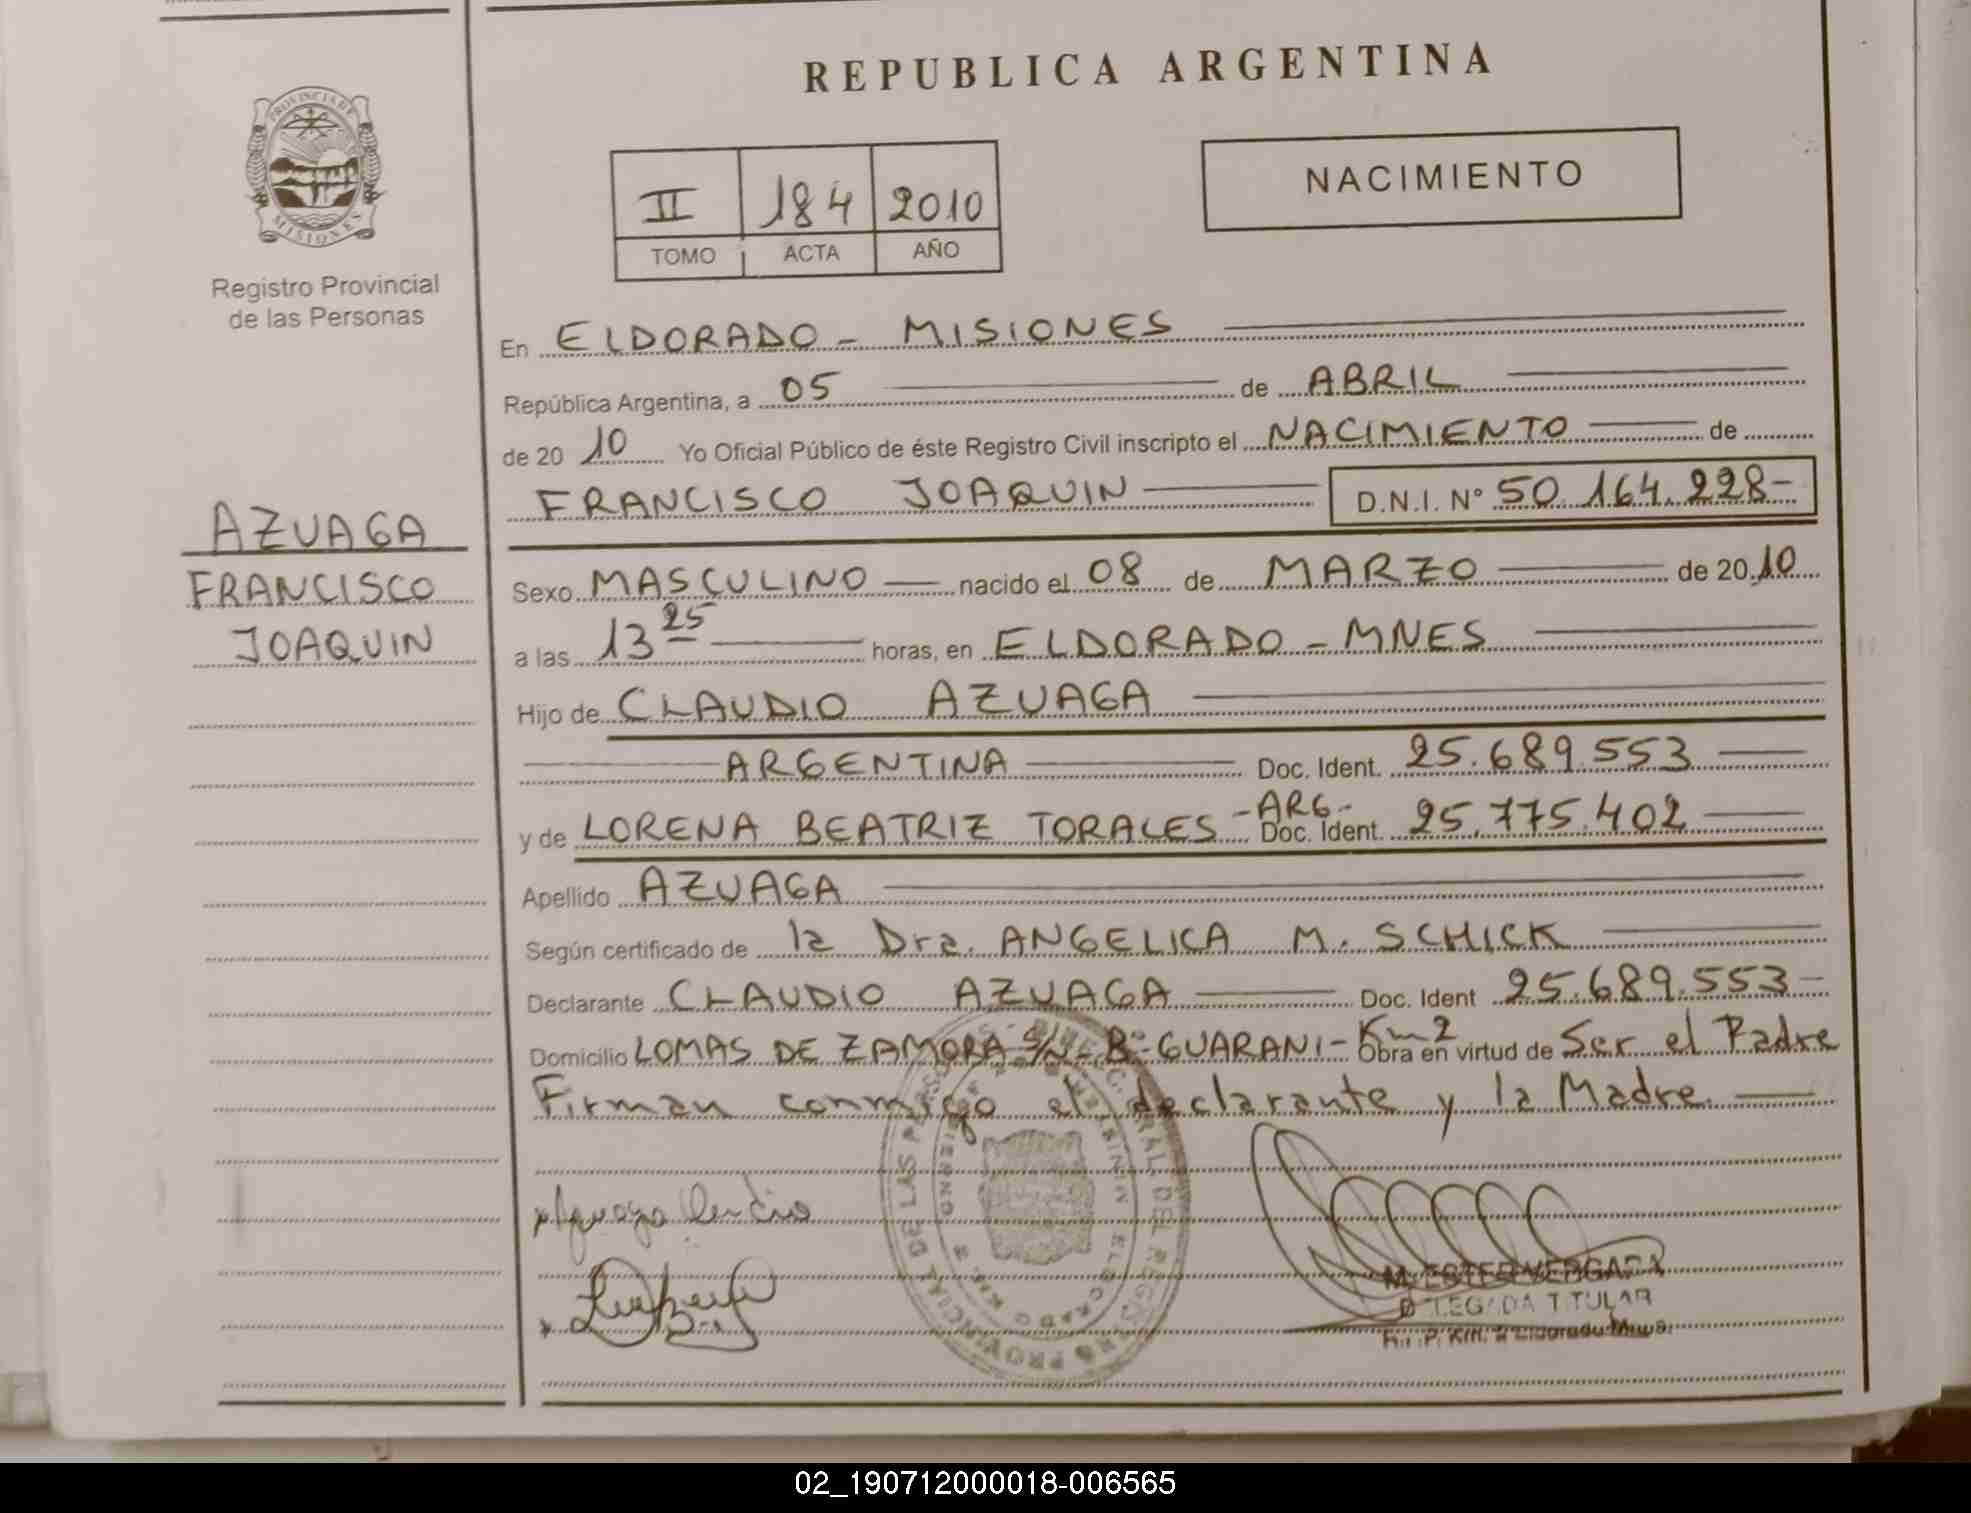 REPUBLICA ARGENTINA
PROVINCIA DE
MISIONES
Registro Provincial
de las Personas
II 184 2010
TOMO ACTA AÑO
NACIMIENTO
En ELDORADO - MISIONES
República Argentina, a 05 de ABRIL
de 20 10 Yo Oficial Público de éste Registro Civil inscripto el NACIMIENTO de
FRANCISCO JOAQUIN D.N.I. N° 50.164.228-
AZUAGA
FRANCISCO
JOAQUIN
Sexo MASCULINO nacido el 08 de MARZO de 20 10
a las 13 25 horas, en ELDORADO - MNES
Hijo de CLAUDIO AZUAGA
ARGENTINA Doc. Ident. 25.689.553
y de LORENA BEATRIZ TORALES -ARG- Doc. Ident. 25.775.402
Apellido AZUAGA
Según certificado de la Dra. ANGELICA M. SCHICK
Declarante CLAUDIO AZUAGA Doc. Ident 25.689.553-
Domicilio LOMAS DE ZAMORA S/N - B° GUARANI - Km 2 Obra en virtud de Ser el Padre
Firman conmigo el declarante y la Madre.
M. ESTER VERGARA
DELEGADA TITULAR
02_190712000018-006565